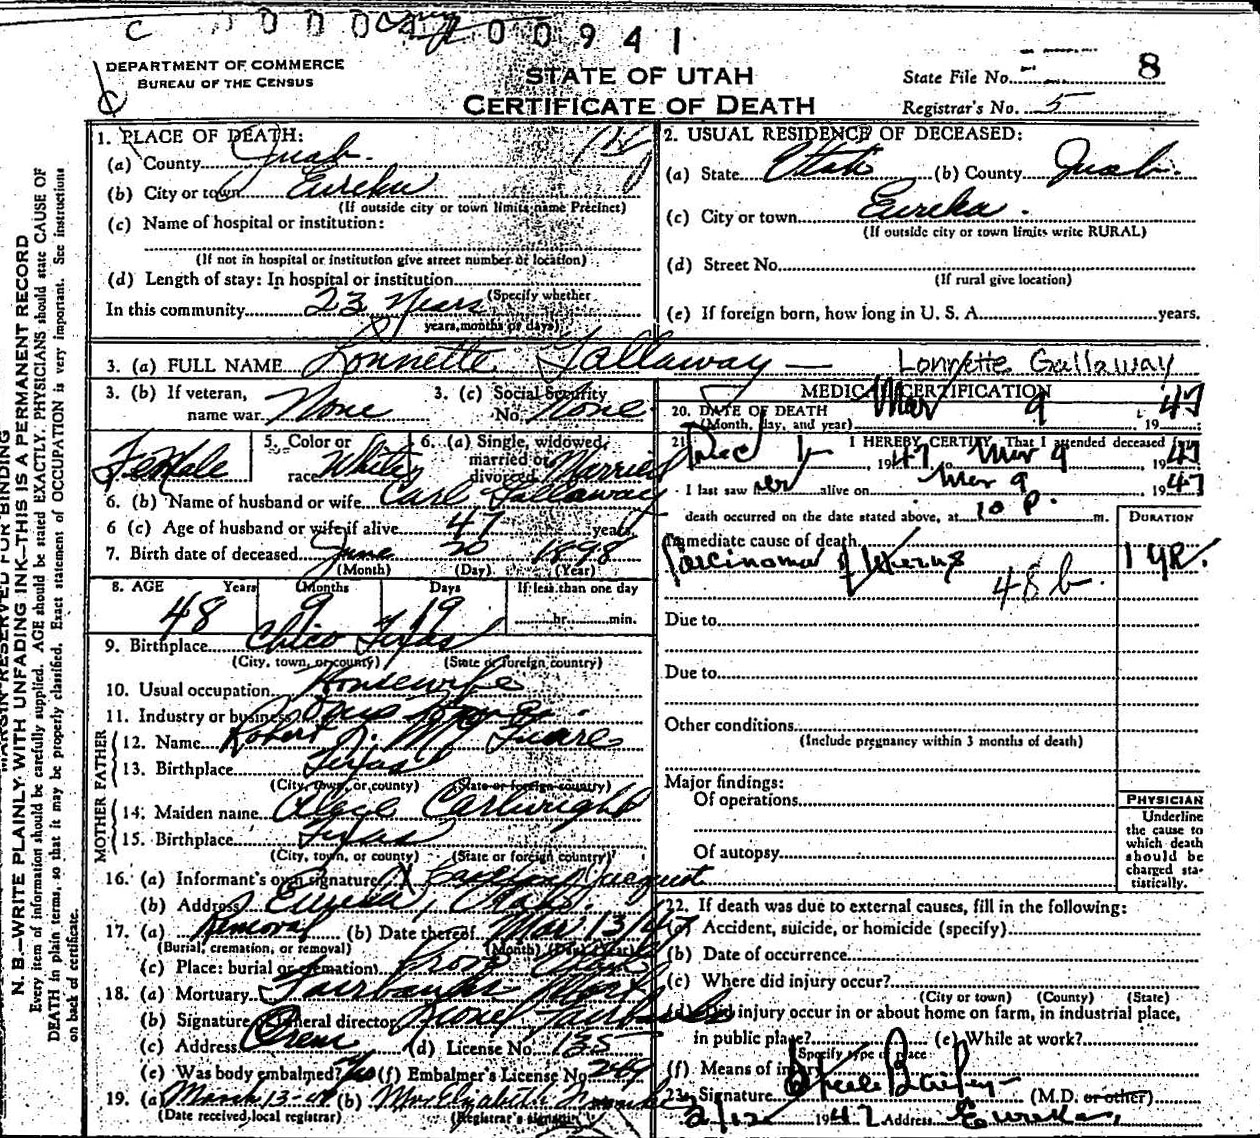 C 0 0 0 0 0 9 4 1
DEPARTMENT OF COMMERCE
BUREAU OF THE CENSUS
STATE OF UTAH
CERTIFICATE OF DEATH
State File No. 8
Registrar's No. 5
MARGIN RESERVED FOR BINDING
N. B.—WRITE PLAINLY WITH UNFADING INK—THIS IS A PERMANENT RECORD
Every item of information should be carefully supplied. AGE should be stated EXACTLY. PHYSICIANS should state CAUSE OF
DEATH in plain terms, so that it may be properly classified. Exact statement of OCCUPATION is very important. See instructions
on back of certificate.
1. PLACE OF DEATH:
(a) County Juab.
(b) City or town Eureka
(If outside city or town limits name Precinct)
(c) Name of hospital or institution:
(If not in hospital or institution give street number or location)
(d) Length of stay: In hospital or institution
(Specify whether
In this community 23 Years
years, months or days)
2. USUAL RESIDENCE OF DECEASED:
(a) State Utah (b) County Juab.
(c) City or town Eureka.
(If outside city or town limits write RURAL)
(d) Street No.
(If rural give location)
(e) If foreign born, how long in U. S. A. years.
3. (a) FULL NAME Lonnette Gallaway — Lonnette Gallaway
3. (b) If veteran,
name war None
3. (c) Social Security
No. None
Female
5. Color or
race White
6. (a) Single, widowed,
married or
divorced Married
6. (b) Name of husband or wife Carl Gallaway
6 (c) Age of husband or wife if alive 47 years
7. Birth date of deceased June 20 1898
(Month) (Day) (Year)
8. AGE Years Months Days If less than one day
48 9 19 hr. min.
9. Birthplace Chico Texas
(City, town, or county) (State or foreign country)
10. Usual occupation Housewife
11. Industry or business
FATHER
12. Name Robert
13. Birthplace Texas
(City, town, or county) (State or foreign country)
MOTHER
14. Maiden name Cartwright
15. Birthplace Texas
(City, town, or county) (State or foreign country)
16. (a) Informant's own signature X
(b) Address Eureka, Utah.
17. (a) Removal (b) Date thereof Mar 13/47
(Burial, cremation, or removal) (Month) (Day) (Year)
(c) Place: burial or cremation Provo Utah
18. (a) Mortuary Fairbanks Mort
(b) Signature funeral director Fairbanks
(c) Address Orem (d) License No. 135
(e) Was body embalmed? Yes (f) Embalmer's License No. 269
19. (a) March 13-47 (b) Mrs Elizabeth
(Date received local registrar) (Registrar's signature)
MEDICAL CERTIFICATION
20. DATE OF DEATH Mar 9, 1947
(Month, day, and year)
21. I HEREBY CERTIFY, That I attended deceased from
Dec 1, 1947 to Mar 9, 1947
I last saw her alive on Mar 9, 1947
death occurred on the date stated above, at 10 P. m.
DURATION
Immediate cause of death
Carcinoma of Uterus 1 yr.
48 b.
Due to
Due to
Other conditions
(Include pregnancy within 3 months of death)
Major findings:
Of operations
Of autopsy
PHYSICIAN
Underline
the cause to
which death
should be
charged sta-
tistically.
22. If death was due to external causes, fill in the following:
(a) Accident, suicide, or homicide (specify)
(b) Date of occurrence
(c) Where did injury occur?
(City or town) (County) (State)
(d) Did injury occur in or about home on farm, in industrial place,
in public place? (e) While at work?
(Specify type of place
(f) Means of injury
23. Signature Steele Bailey (M.D. or other)
2/12 1947 Address Eureka,